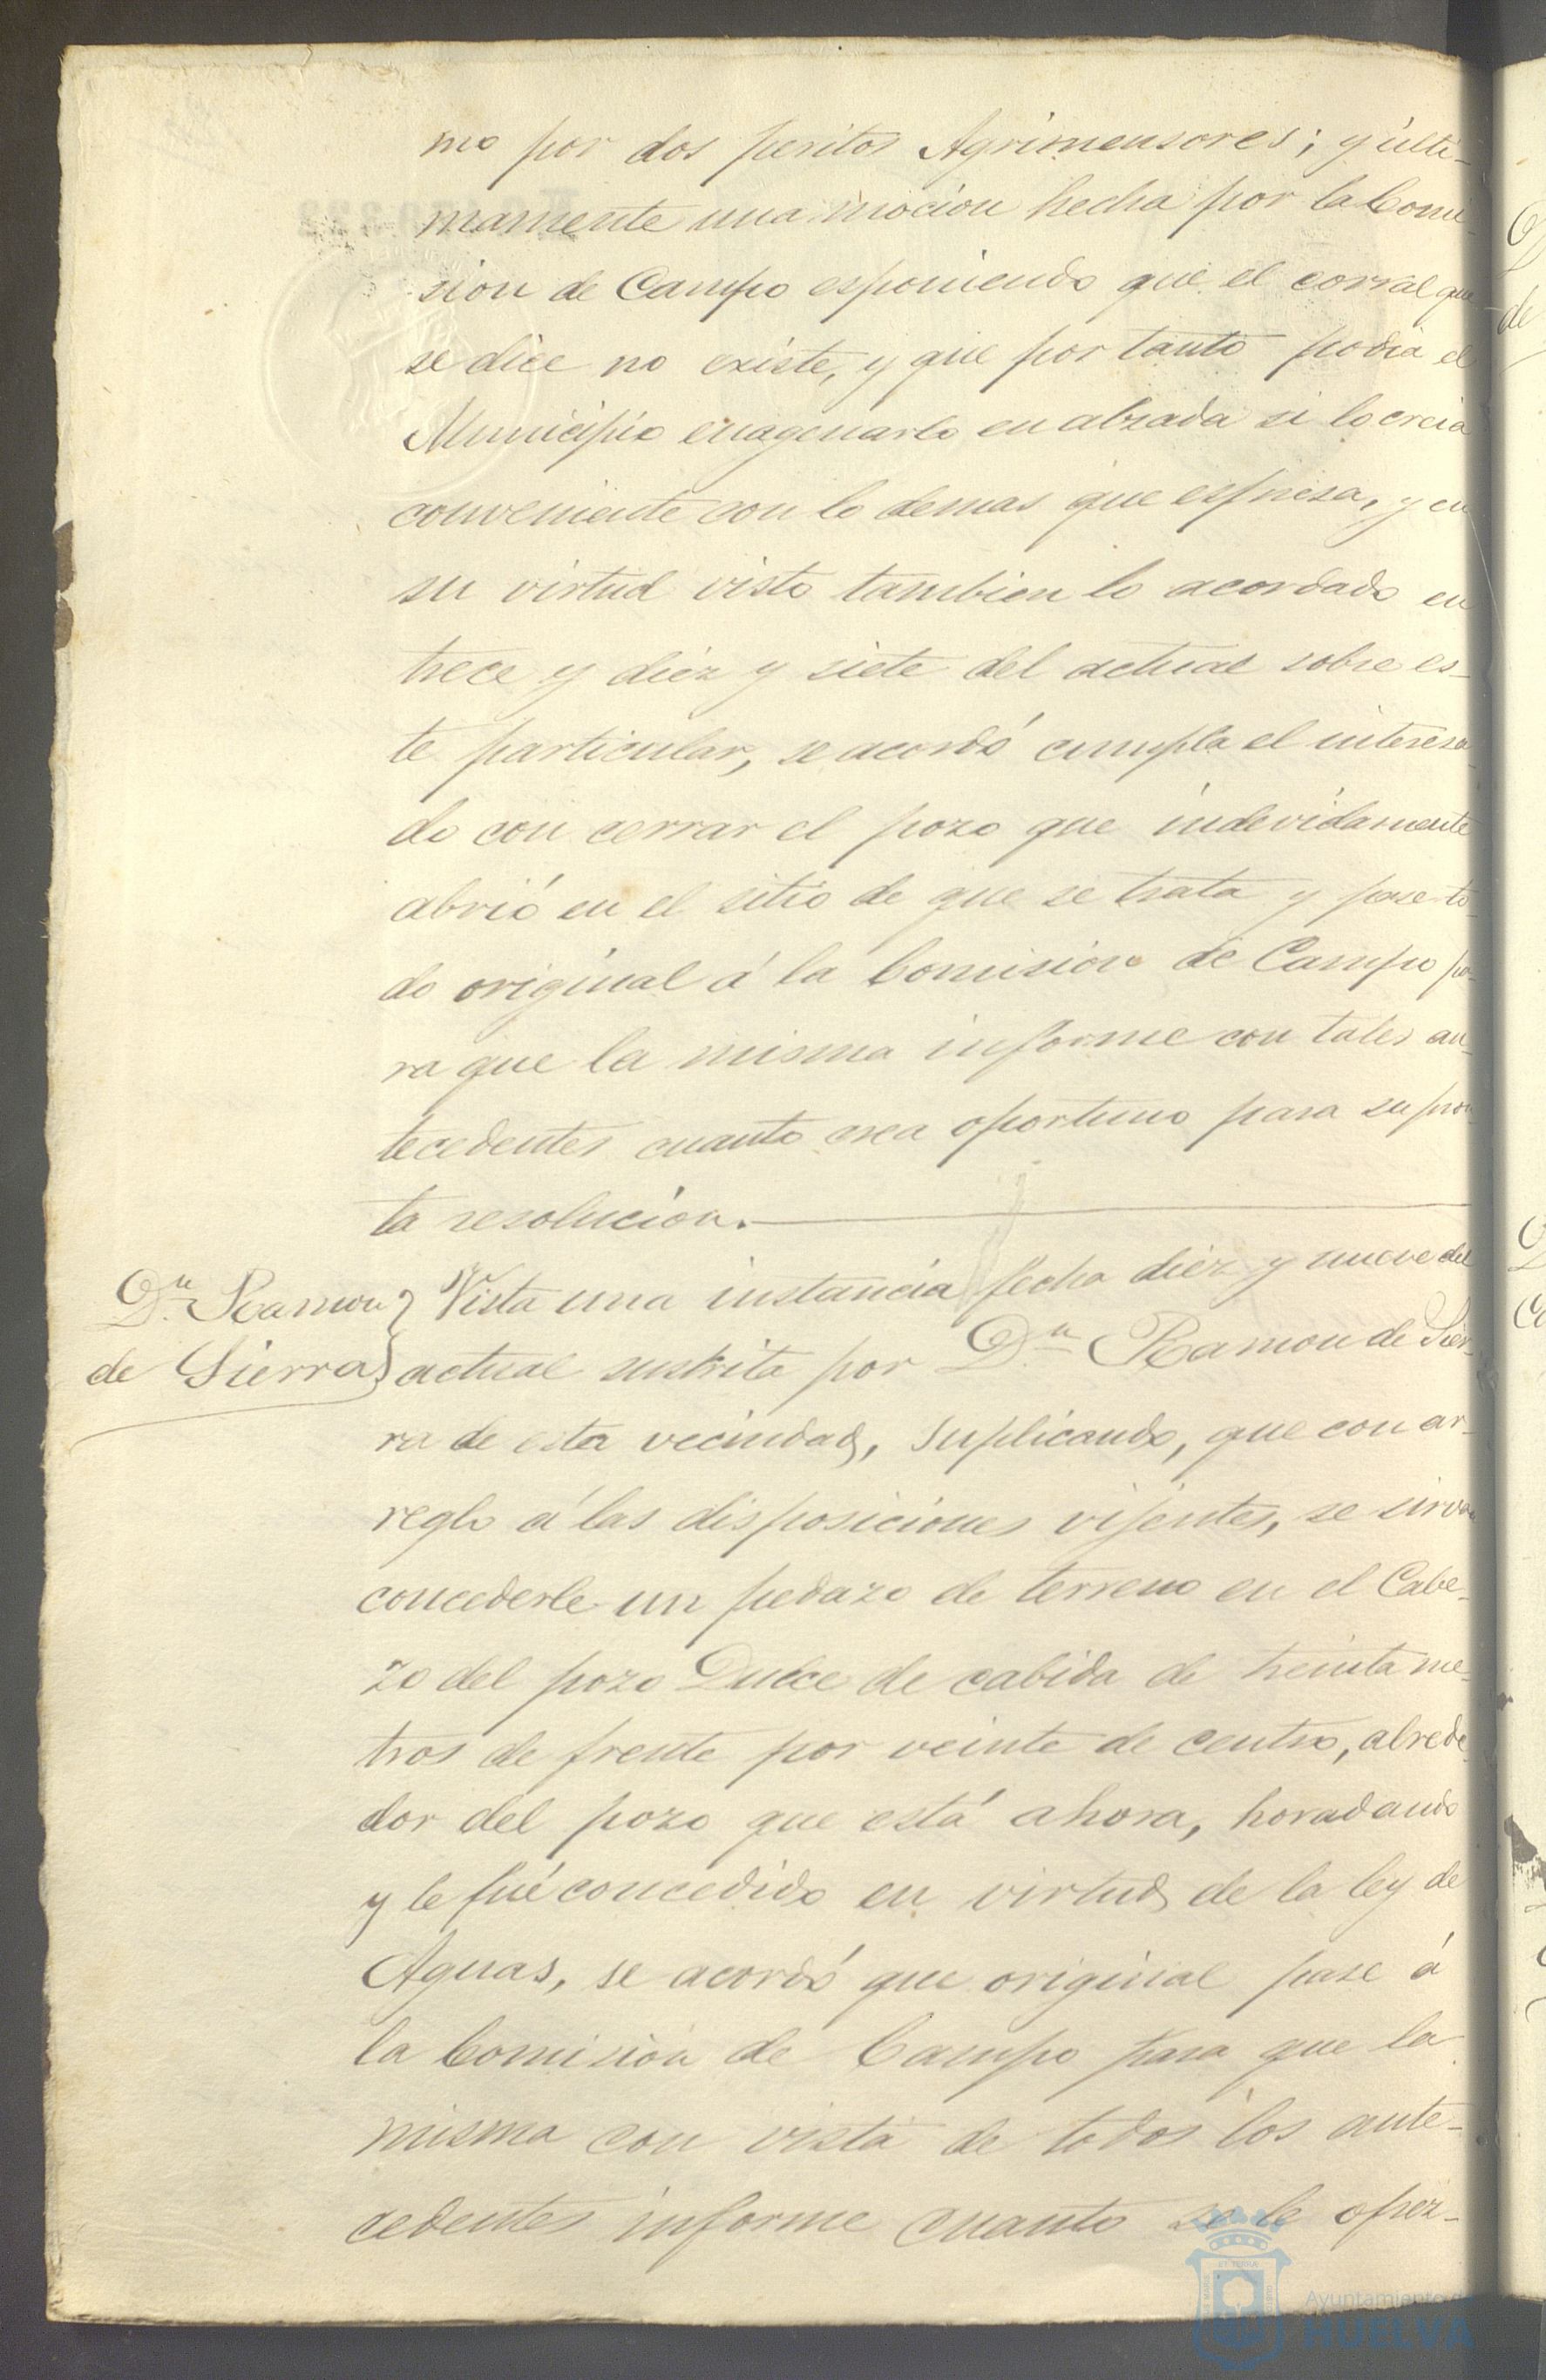 mo por dos peritos Agrimensores; y últi-
mamente una mocion hecha por la Comi-
sion de Campo esponiendo que el corral que
se dice no existe, y que por tanto podia el
Municipio enagenarlo en alzada si lo creia
conveniente con lo demas que espresa, y en
su virtud visto tambien lo acordado en
trece y diez y siete del actual sobre es-
te particular, se acordó cumpla el interesa-
do con cerrar el pozo que indevidamente
abrió en el sitio de que se trata y pase to-
do original á la Comision de Campo pa-
ra que la misma informe con tales an-
tecedentes cuanto crea oportuno para su pron-
ta resolucion.
Dn. Ramon
de Sierra
Vista una instancia fecha diez y nueve del
actual suscrita por Dn. Ramon de Sier-
ra de esta vecindad, suplicando, que con ar-
reglo á las disposiciones vijentes, se sirva
concederle un pedazo de terreno en el Cabe-
zo del pozo Dulce de cabida de treinta me-
tros de frente por veinte de centro, alrede-
dor del pozo que está ahora, horadando
y le fué concedido en virtud de la ley de
Aguas, se acordó que original pase á
la Comision de Campo para que la
misma con vista de todos los ante-
cedentes informe cuanto se le ofrez-
Ayuntamiento de
HUELVA